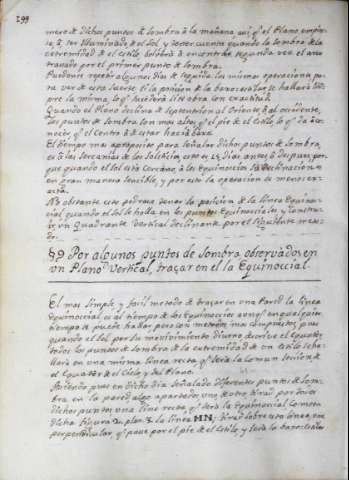 299
mero de dichos puntos de sombra à la mañana, assi qᵉ el Plano empie-
ze à ser illuminado del Sol, y tener cuenta quando la sombra de la
extremidad de el estilo bolverà à encontrar segunda vez el arco
trazado por el primer punto de sombra.
Puedense repetir algunos dias de seguida las mismas operaciones para
ver de esta suerte si la posicion de la horizontal se hallarà siem-
pre la misma, lo qᵉ sucederà si se obra con exactitud.
Quando el Plano declina de Septentrion al Oriente ò al occidente,
los puntos de sombra son mas altos qᵉ el pie de el estilo, lo qᵉ dà à co-
nocer, qᵉ el centro à de estar hazia baxo.
El tiempo mas apropiado para señalar dichos puntos de sombra,
es à las cercanias de los Solsticios, esto es, 15 dias antes ò despues, por-
que quando el Sol està cercano à los Equinoccios su declinacion es
en gran manera sensible, y por esto la operacion es menos ex-
acta.
No obstante esto podràse tener la posicion de la linea Equinoc-
cial quando el Sol se halla en los puntos Equinocciales, y construi-
rse un Quadrante Vertical declinante por el siguiente me-
do.
§9 Por algunos puntos de Sombra observados en
un Plano Vertical, trazar en el la Equinoccial.
El mas simple, y facil metodo de trazar en una Pared la linea
Equinoccial es al tiempo de los Equinoccios aunqᵉ en qualquier
tiempo se puede hallar pero con metodos mas compuestos, pues
quando el Sol por su movimiento diurno descrive el Equator,
todos los puntos de sombra de la extremidad de un estilo se ha-
llarà en una misma linea recta qᵉ serà la comun seccion de
el Equator de el Cielo, y del Plano.
Haviendo pues en dicho dia señalado diferentes puntos de som-
bra en la pared algo apartados uno de otro, tirad por todos
dichos puntos una linea recta qᵉ serà la Equinoccial como en
dicha figura 2. plan. 3. la linea HN; tirad sobre esta linea, una
perpendicular, qᵉ passe por el pie de el Estilo, y serà la horizontal